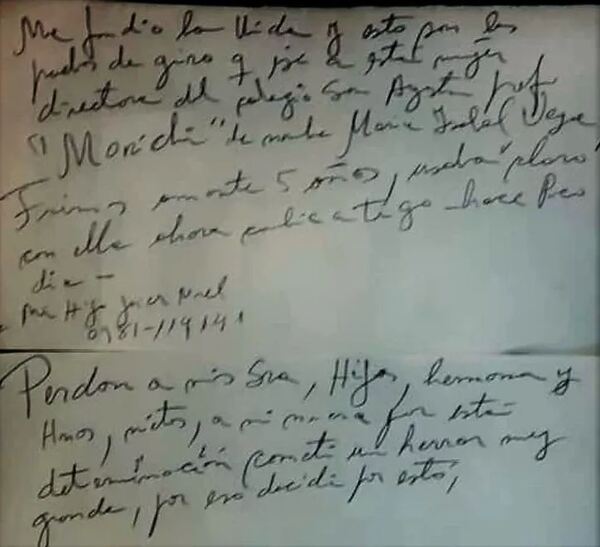 Me fundio la Vida y esto por los
de giro q a esta mujer
directora del colegio San Agustin
"Morichi" de nombre Maria Isabel Vega
Fuimos amante 5 años,
con ella ahora publica tigo hace Poco
dia -
Mi Hijo Javier
0981-114141
Perdon a mis Sra, Hijos, hermana y
Hnos, nietos, a mi nuera por esta
determinación cometi un herror muy
grande, por eso decidi por esto,